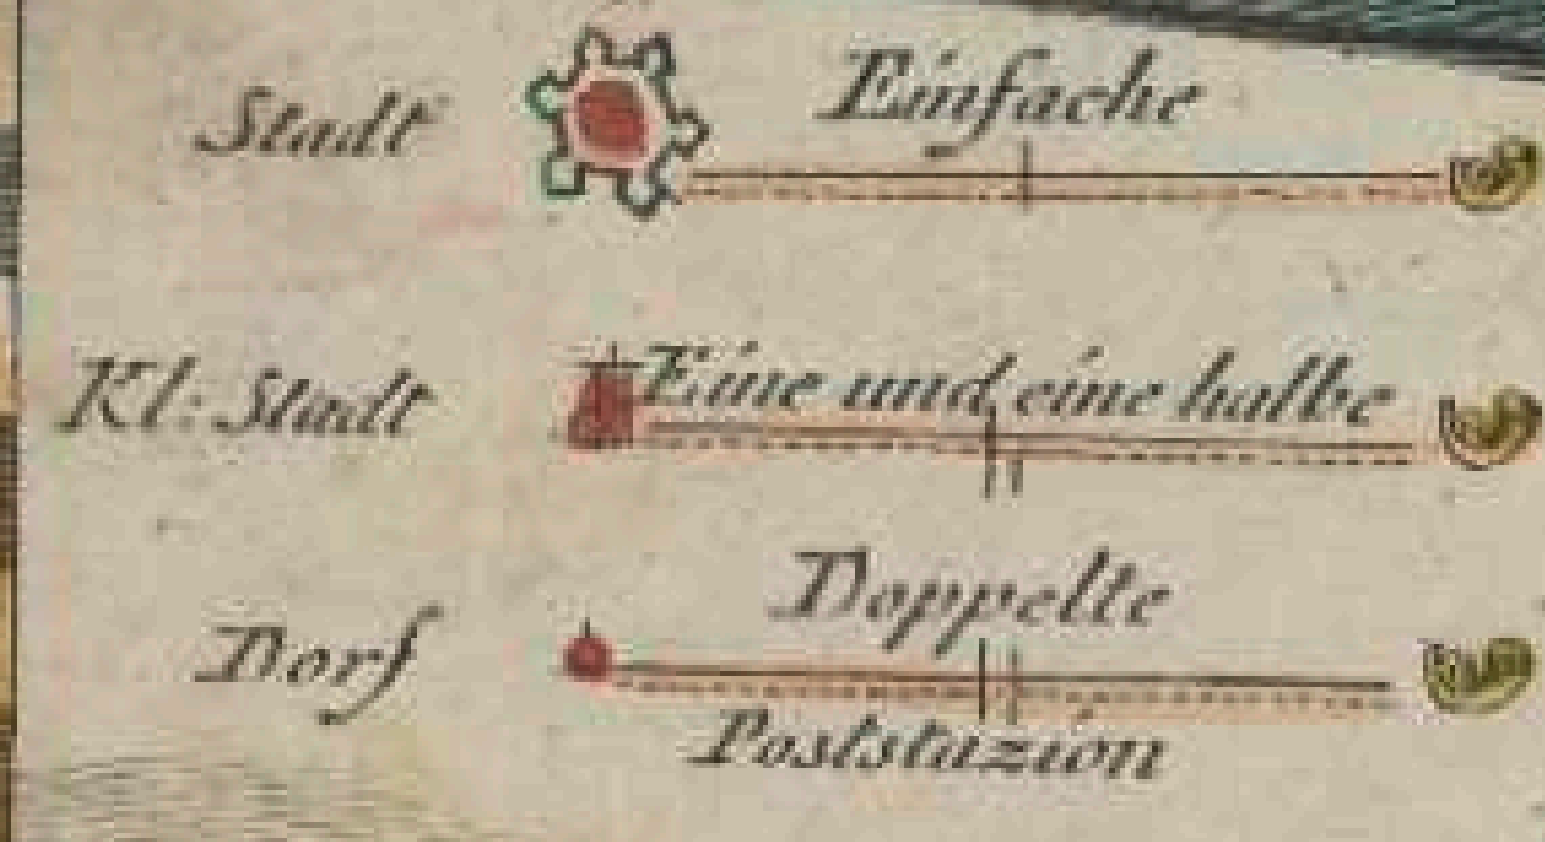 Stadt
Einfache
Kl: Stadt
Eine und eine halbe
Dorf
Doppelte
Poststazion